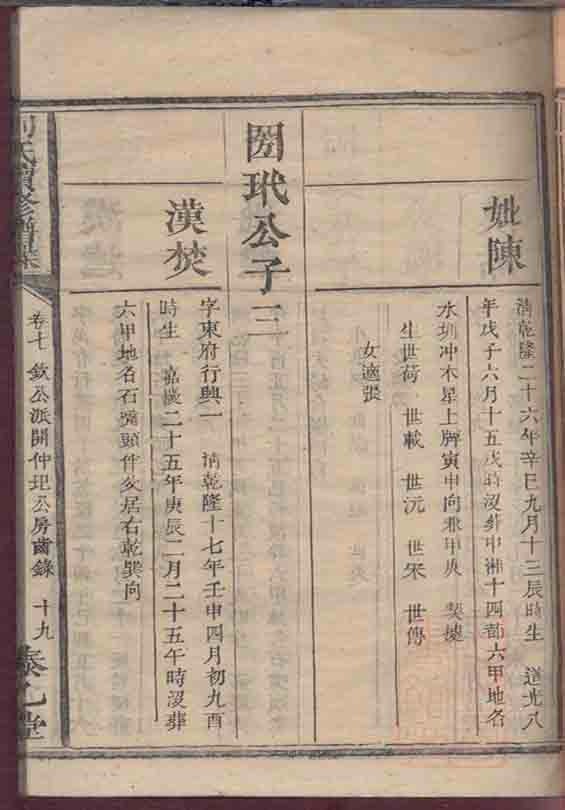 妣陳
清乾隆二十六年辛巳九月十三辰時生 道光八
年戊子六月十五戌時沒葬中湘十四都六甲地名
水圳冲木星上牌寅申向雅甲庚 契據
生世荷 世載 世沅 世宋 世傳
女適張
圀玳公子三
漢焚
字東府行興一 清乾隆十七年壬申四月初九酉
時生 嘉慶二十五年庚辰二月二十五午時沒葬
六甲地名石灣頭件父居右乾巽向
氏續修譜
卷七 欽公派開仲玘公房齒錄 十九
堂